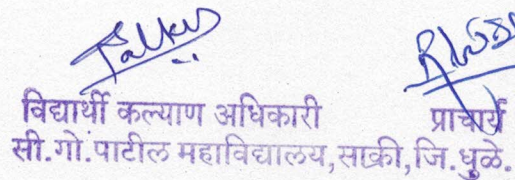 विद्यार्थी कल्याण अधिकारी प्राचार्य
सी.गो.पाटील महाविद्यालय,साक्री,जि.धुळे.